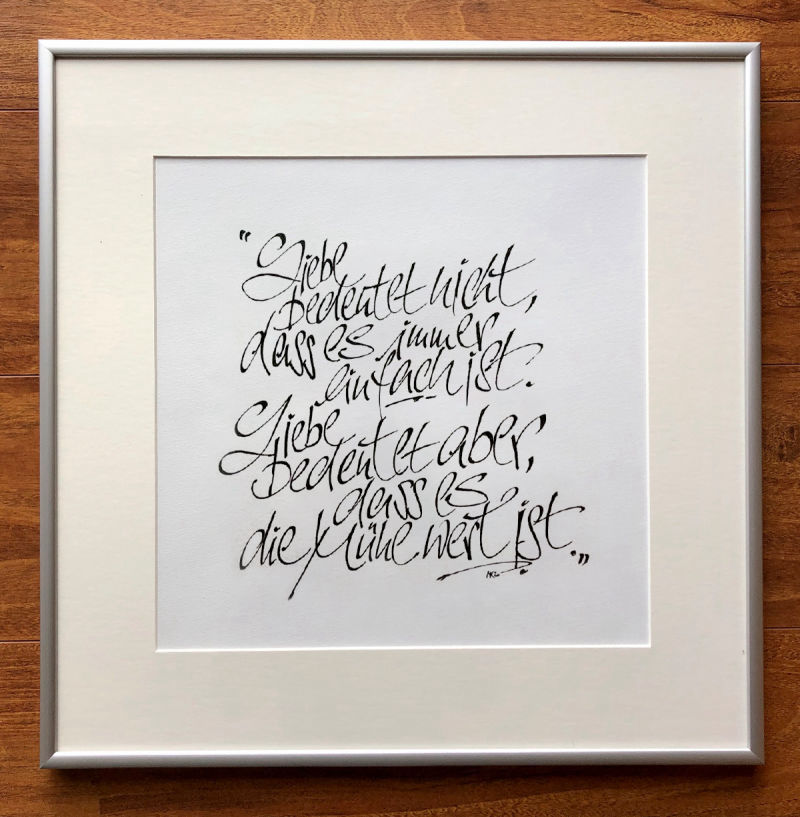 "Liebe
bedeutet nicht,
dass es immer
einfach ist.
Liebe
bedeutet aber,
dass es
die Mühe wert ist."